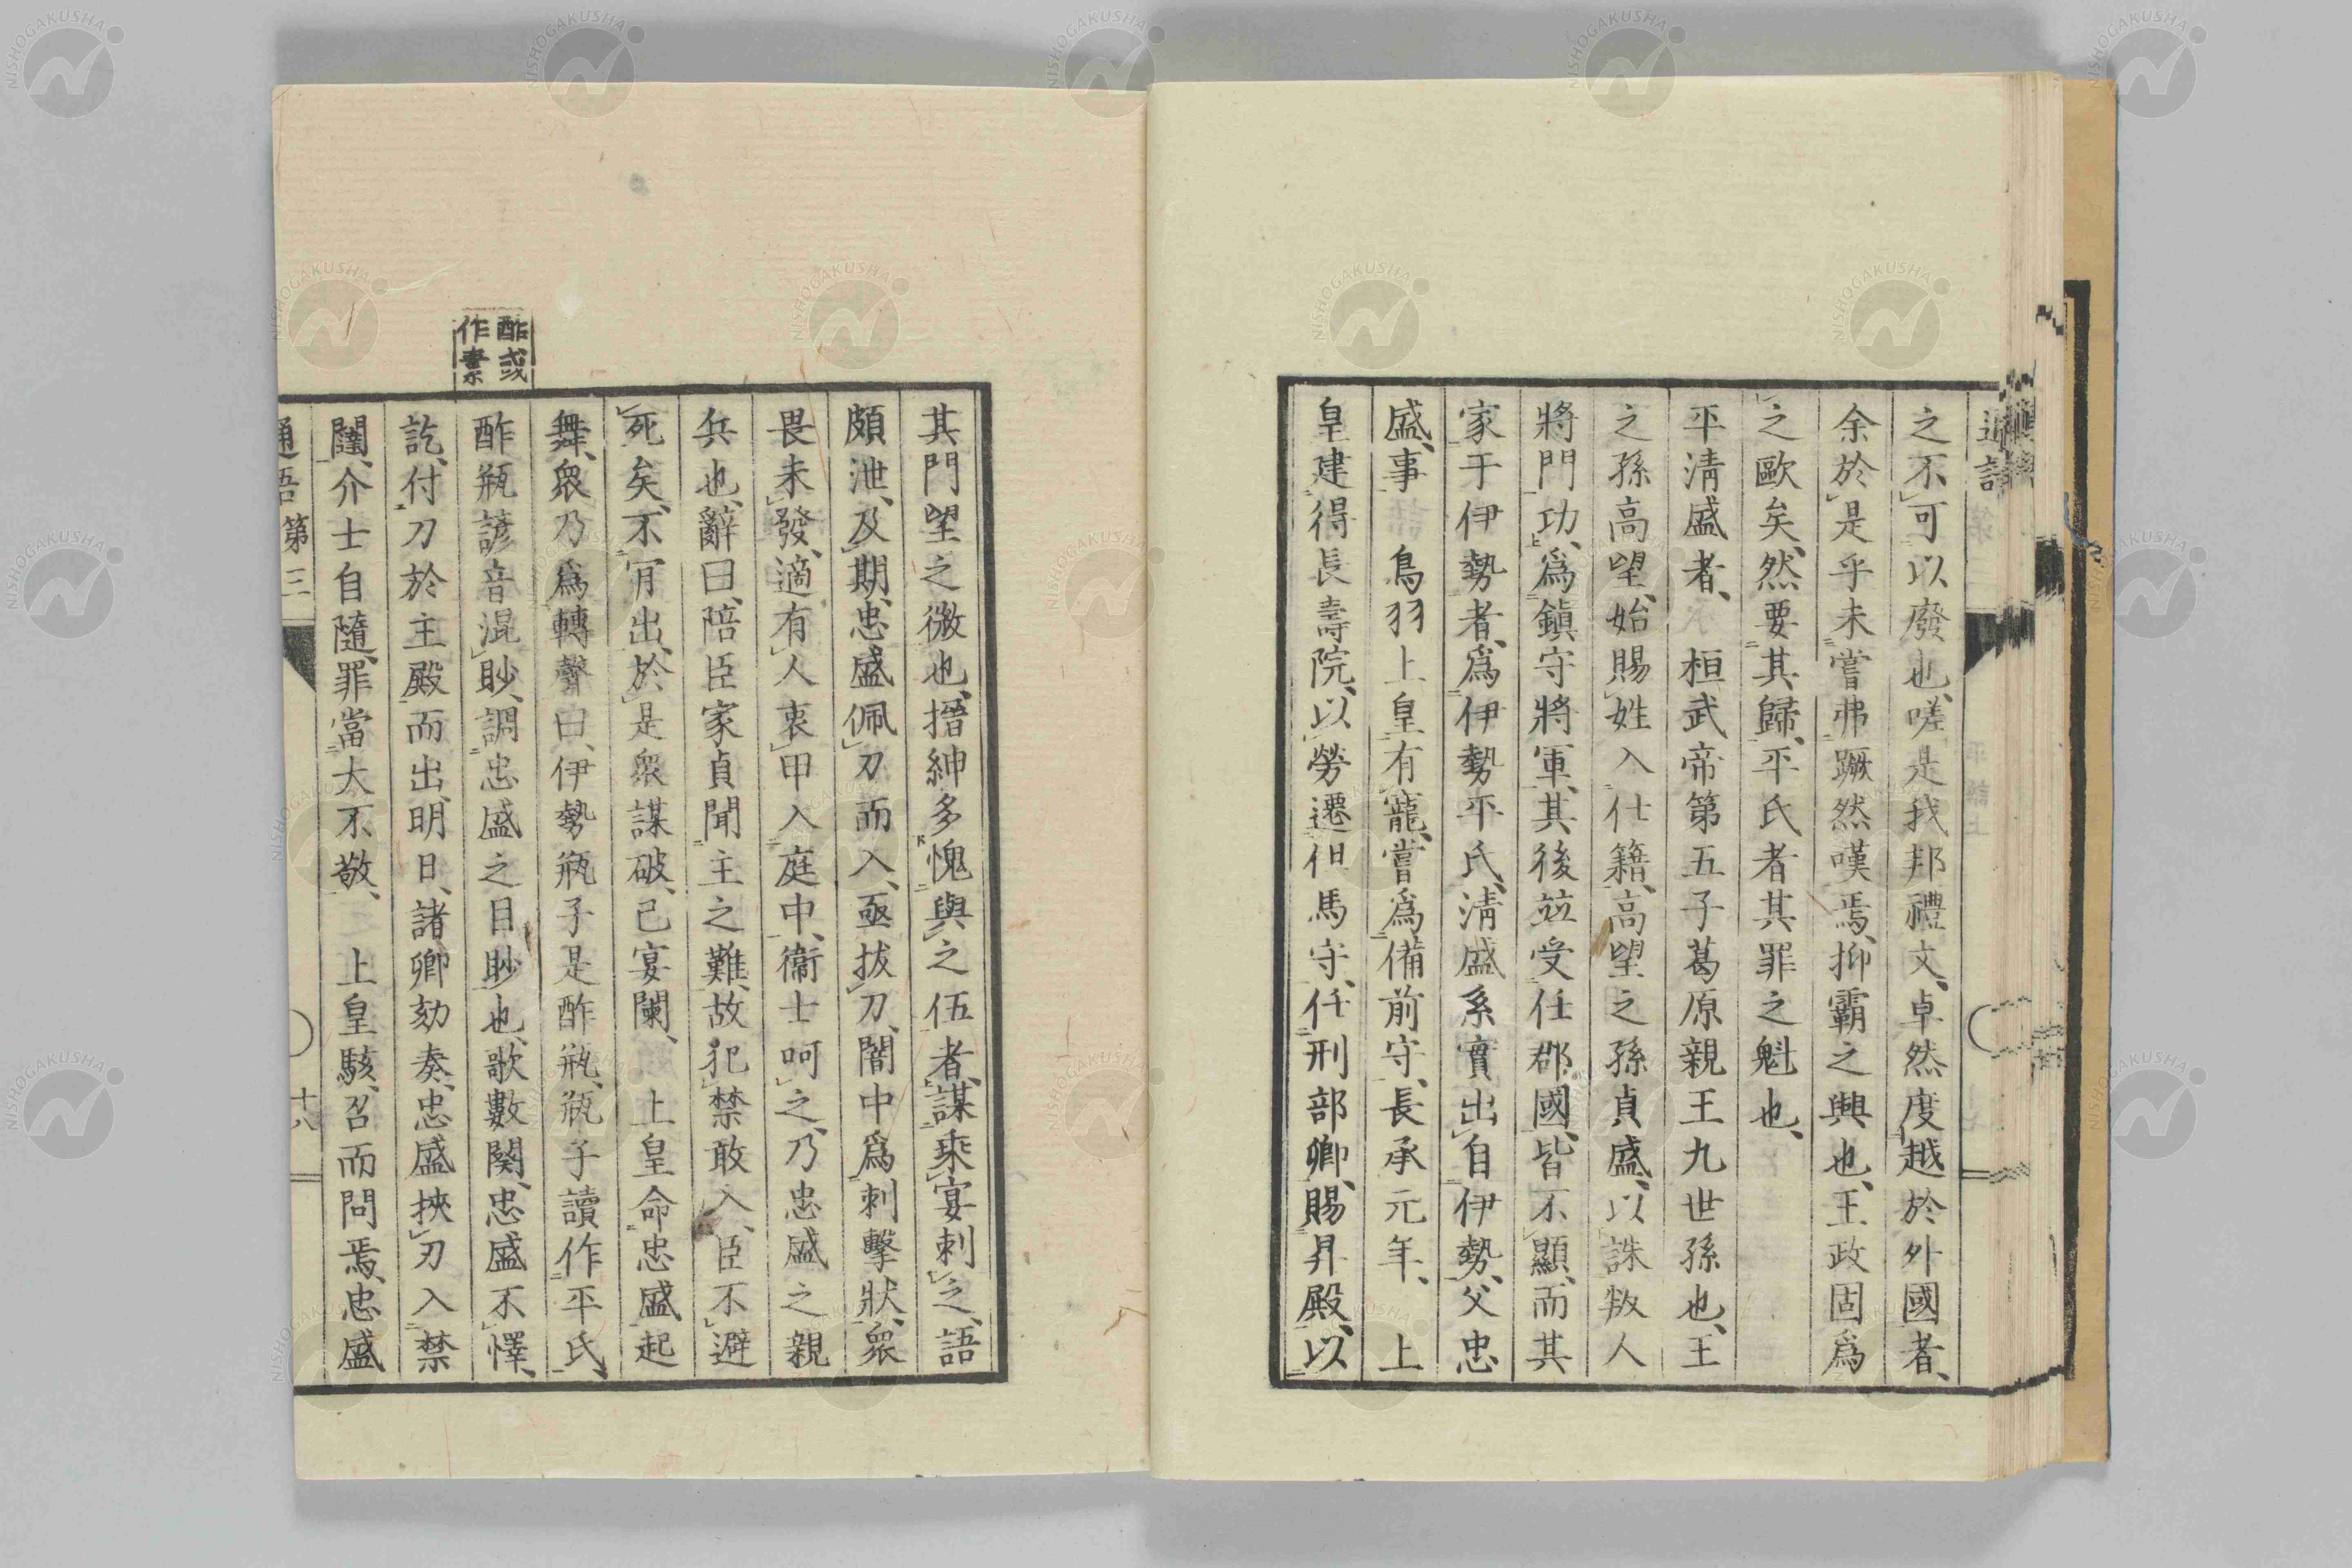 之不可以廢也、嗟是我邦禮文、卓然度越於外國者、
余於是乎未嘗弗蹶然嘆焉、抑霸之興也、王政固爲
之歐矣、然要其歸、平氏者其罪之魁也、
平淸盛者、桓武帝第五子葛原親王九世孫也、王
之孫高望、始賜姓入仕籍、高望之孫貞盛、以誅叛人
將門功、爲鎭守將軍、其後竝受任郡國、皆不顯、而其
家于伊勢者、爲伊勢平氏、淸盛系實出自伊勢、父忠
盛、事 鳥羽上皇有寵、嘗爲備前守、長承元年、上
皇建得長壽院、以勞遷但馬守、任刑部卿、賜昇殿、以
其門望之微也、搢紳多愧與之伍者、謀乘宴刺之、語
頗泄、及期、忠盛佩刀而入、亟拔刀、闇中爲刺擊狀、衆
畏未發、適有人衷甲入庭中、衞士呵之、乃忠盛之親
兵也、辭曰、陪臣家貞聞主之難、故犯禁敢入、臣不避
死矣、不肎出、於是衆謀破、已宴闌、上皇命忠盛起
舞、衆乃爲轉聲曰、伊勢瓶子是酢瓶、瓶子讀作平氏、
酢瓶諺音混眇、謂忠盛之目眇也、歌數闋、忠盛不懌、
訖、付刀於主殿而出、明日、諸卿劾奏、忠盛挾刀入禁
闥、介士自隨、罪當大不敬、上皇駭、召而問焉、忠盛
酢或
作素
通語
通語 第三
十八
NISHOGAKUSHA